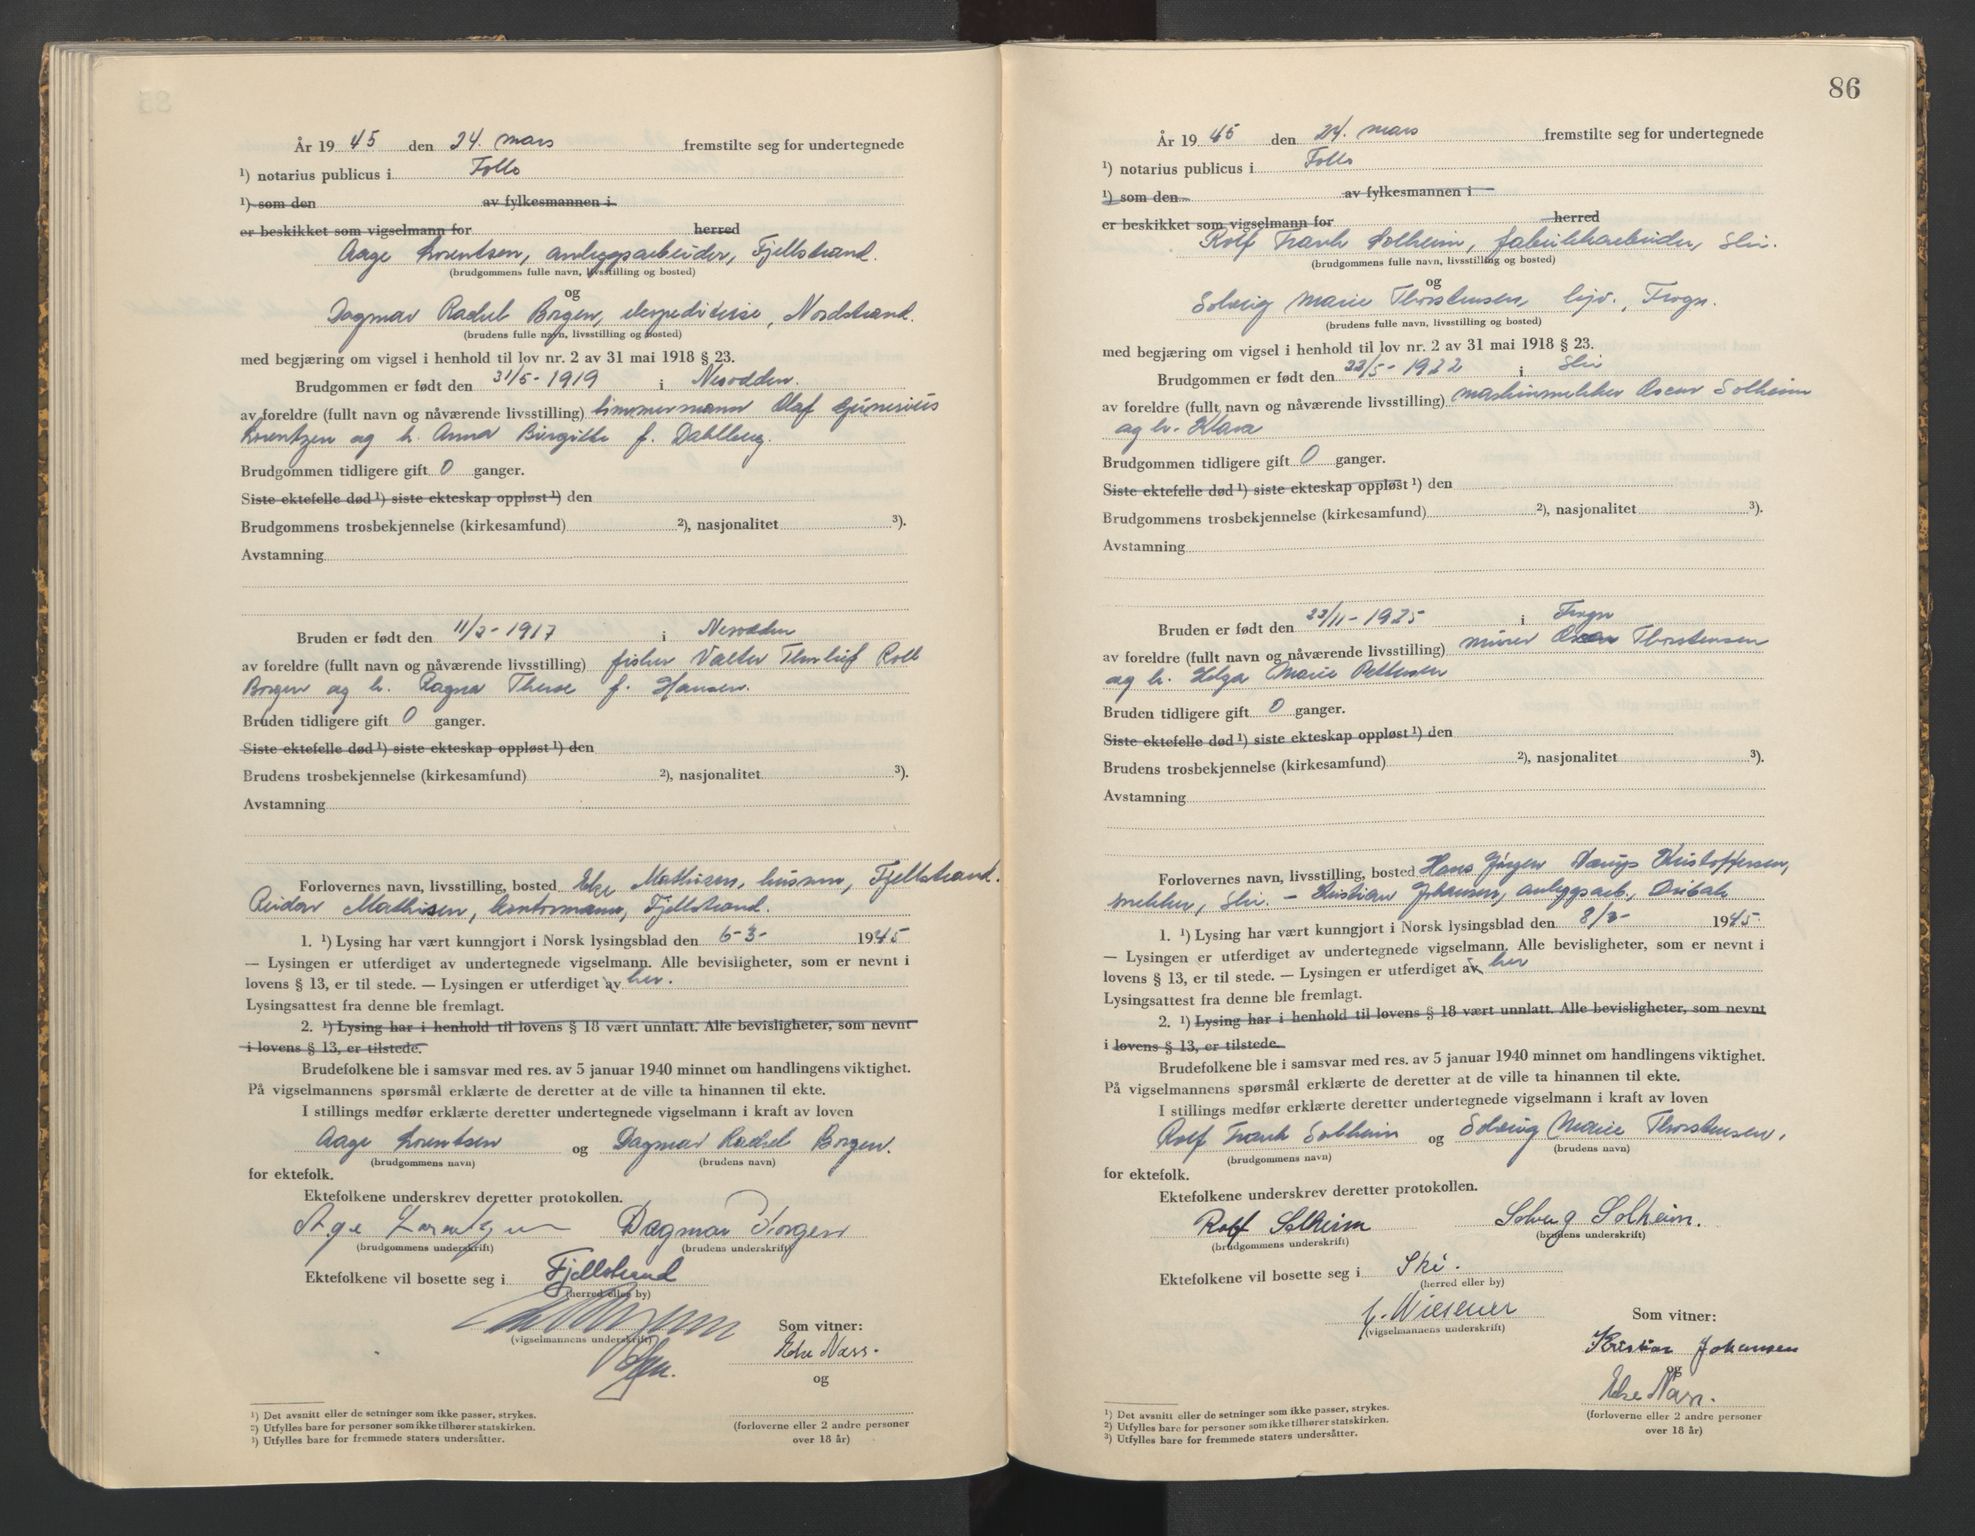 År 1945 den 24. mars fremstilte seg for undertegnede
¹) notarius publicus i Follo
¹) som den av fylkesmannen i
er beskikket som vigselmann for herred
Aage Lorentsen, anleggsarbeider, Fjellstrand.
(brudgommens fulle navn, livsstilling og bosted)
og
Dagmar Rachel Borgen, ekspeditrise, Nordstrand.
(brudens fulle navn, livsstilling og bosted)
med begjæring om vigsel i henhold til lov nr. 2 av 31 mai 1918 § 23.
Brudgommen er født den 31/5-1919 i Nesodden.
av foreldre (fullt navn og nåværende livsstilling) tømmermann Olaf
Lorentzen og h. Anna Birgitte f. Dahlberg.
Brudgommen tidligere gift 0 ganger.
Siste ektefelle død ¹) siste ekteskap oppløst ¹) den
Brudgommens trosbekjennelse (kirkesamfund) ²), nasjonalitet ³).
Avstamning
Bruden er født den 11/2-1917 i Nesodden
av foreldre (fullt navn og nåværende livsstilling) fisker Valter Thorleif Roll
Borgen og h. Ragna Therese f. Hansen.
Bruden tidligere gift 0 ganger.
Siste ektefelle død ¹) siste ekteskap oppløst ¹) den
Brudens trosbekjennelse (kirkesamfund) ²), nasjonalitet ³).
Avstamning
Forlovernes navn, livsstilling, bosted Mathisen, Fjellstrand.
Reidar Mathisen, kontormann, Fjellstrand.
1. ¹) Lysing har vært kunngjort i Norsk lysingsblad den 6-3- 1945
— Lysingen er utferdiget av undertegnede vigselmann. Alle bevisligheter, som er nevnt i
lovens § 13, er til stede. — Lysingen er utferdiget av her.
Lysingsattest fra denne ble fremlagt.
2. ¹) Lysing har i henhold til lovens § 18 vært unnlatt. Alle bevisligheter, som nevnt
i lovens § 13, er tilstede.
Brudefolkene ble i samsvar med res. av 5 januar 1940 minnet om handlingens viktighet.
På vigselmannens spørsmål erklærte de deretter at de ville ta hinannen til ekte.
I stillings medfør erklærte deretter undertegnede vigselmann i kraft av loven
Aage Lorentsen og Dagmar Rachel Borgen.
(brudgommens navn) (brudens navn)
for ektefolk.
Ektefolkene underskrev deretter protokollen.
Åge Lorentzen Dagmar Borgen
(brudgommens underskrift) (brudens underskrift)
Ektefolkene vil bosette seg i Fjellstrand
(herred eller by)
(vigselmannens underskrift)
Som vitner:
Else Næss.
og
(forloverne eller 2 andre personer
over 18 år)
¹) Det avsnitt eller de setninger som ikke passer, strykes.
²) Utfylles bare for personer som ikke tilhører statskirken.
³) Utfylles bare for fremmede staters undersåtter.
86
År 1945 den 24. mars fremstilte seg for undertegnede
¹) notarius publicus i Follo
¹) som den av fylkesmannen i
er beskikket som vigselmann for herred
Rolf Frank Solheim, fabrikkarbeider, Ski.
(brudgommens fulle navn, livsstilling og bosted)
og
Solveig Marie Thorstensen, hjv., Frogn.
(brudens fulle navn, livsstilling og bosted)
med begjæring om vigsel i henhold til lov nr. 2 av 31 mai 1918 § 23.
Brudgommen er født den 22/5-1922 i Ski
av foreldre (fullt navn og nåværende livsstilling) maskinmekker Oscar Solheim
og h. Klara
Brudgommen tidligere gift 0 ganger.
Siste ektefelle død ¹) siste ekteskap oppløst ¹) den
Brudgommens trosbekjennelse (kirkesamfund) ²), nasjonalitet ³).
Avstamning
Bruden er født den 22/11-1925 i Frogn
av foreldre (fullt navn og nåværende livsstilling) murer Oscar Thorstensen
og h. Helga Marie Pettersen
Bruden tidligere gift 0 ganger.
Siste ektefelle død ¹) siste ekteskap oppløst ¹) den
Brudens trosbekjennelse (kirkesamfund) ²), nasjonalitet ³).
Avstamning
Forlovernes navn, livsstilling, bosted Hans Jørgen Kristoffersen,
mekker, Ski. — Kristian Johansen, anleggsarb.,
1. ¹) Lysing har vært kunngjort i Norsk lysingsblad den 8/3- 1945.
— Lysingen er utferdiget av undertegnede vigselmann. Alle bevisligheter, som er nevnt i
lovens § 13, er til stede. — Lysingen er utferdiget av her
Lysingsattest fra denne ble fremlagt.
2. ¹) Lysing har i henhold til lovens § 18 vært unnlatt. Alle bevisligheter, som nevnt
i lovens § 13, er tilstede.
Brudefolkene ble i samsvar med res. av 5 januar 1940 minnet om handlingens viktighet.
På vigselmannens spørsmål erklærte de deretter at de ville ta hinannen til ekte.
I stillings medfør erklærte deretter undertegnede vigselmann i kraft av loven
Rolf Frank Solheim og Solveig Marie Thorstensen,
(brudgommens navn) (brudens navn)
for ektefolk.
Ektefolkene underskrev deretter protokollen.
Rolf Solheim Solveig Solheim.
(brudgommens underskrift) (brudens underskrift)
Ektefolkene vil bosette seg i Ski.
(herred eller by)
Wiesener
(vigselmannens underskrift)
Som vitner:
Kristian Johansen
og
Else Næss.
(forloverne eller 2 andre personer
over 18 år)
¹) Det avsnitt eller de setninger som ikke passer, strykes.
²) Utfylles bare for personer som ikke tilhører statskirken.
³) Utfylles bare for fremmede staters undersåtter.